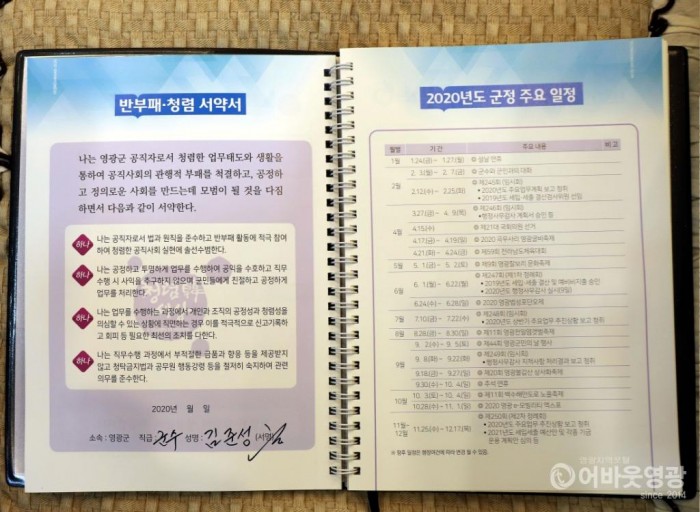 반부패·청렴 서약서
나는 영광군 공직자로서 청렴한 업무태도와 생활을
통하여 공직사회의 관행적 부패를 척결하고, 공정하
고 정의로운 사회를 만드는데 모범이 될 것을 다짐
하면서 다음과 같이 서약한다.
하나 나는 공직자로서 법과 원칙을 준수하고 반부패 활동에 적극 참여
하여 청렴한 공직사회 실현에 솔선수범한다.
하나 나는 공정하고 투명하게 업무를 수행하여 공익을 수호하고 직무
수행 시 사익을 추구하지 않으며 군민들에게 친절하고 공정하게
업무를 처리한다.
하나 나는 업무를 수행하는 과정에서 개인과 조직의 공정성과 청렴성을
의심할 수 있는 상황에 직면하는 경우 이를 적극적으로 신고기록하
고 회피 등 필요한 최선의 조치를 다한다.
하나 나는 직무수행 과정에서 부적절한 금품과 향응 등을 제공받지
않고 청탁금지법과 공무원 행동강령 등을 철저히 숙지하여 관련
의무를 준수한다.
2020년 월 일
소속 : 영광군 직급 군수 성명 : 김준성 (서명)
2020년도 군정 주요 일정
월별 기 간 주요 내용 비고
1월 1.24(금) ~ 1.27(월) 설날 연휴
2월 2. 3(월) ~ 2. 7(금) 군수와 군민과의 대화
2.12(수) ~ 2.25(화) 제245회 (임시회)
• 2020년도 주요업무계획 보고 청취
• 2019년도 세입·세출 결산검사위원 선임
4월 3.27(금) ~ 4. 9(목) 제246회 (임시회)
• 행정사무감사 계획서 승인 등
4.15(수) 제21대 국회의원 선거
4.17(금) ~ 4.19(일)
4.21(화) ~ 4.24(금) 제59회 전라남도체육대회
5월 5. 1(금) ~ 5. 2(토) 제9회 영광찰보리 문화축제
6월 6. 1(월) ~ 6.22(월) 제247회 (제1차 정례회)
• 2019년도 세입·세출 결산 및 예비비지출 승인
• 2020년도 행정사무감사 실시(9일)
6.24(수) ~ 6.28(일) 2020 영광법성포단오제
7월 7.10(금) ~ 7.22(수) 제248회 (임시회)
• 2020년도 상반기 주요업무 추진상황 보고 청취
8월 8.28(금) ~ 8.30(일)
9월 9. 5(토) 제44회 영광군민의 날 행사
9. 8(화) ~ 9.22(화) 제249회 (임시회)
• 행정사무감사 지적사항 처리결과 보고 청취
9.18(금) ~ 9.27(일) 제20회 영광불갑산 상사화축제
9.30(수) ~ 10. 4(일) 추석 연휴
10월 10. 3(토) ~ 10. 4(일) 제11회 백수해안도로 노을축제
10.28(수) ~ 11. 1(일) 2020 영광 e-모빌리티 엑스포
11월~
12월 11.25(수) ~ 12.17(목) 제250회 (제2차 정례회)
• 2020년도 주요업무 추진상황 보고 청취
• 2021년도 세입·세출 예산안 및 각종 기금
운용 계획안 심의 등
※ 향후 일정은 행정여건에 따라 변경 될 수 있음.
어바웃영광
since 2014